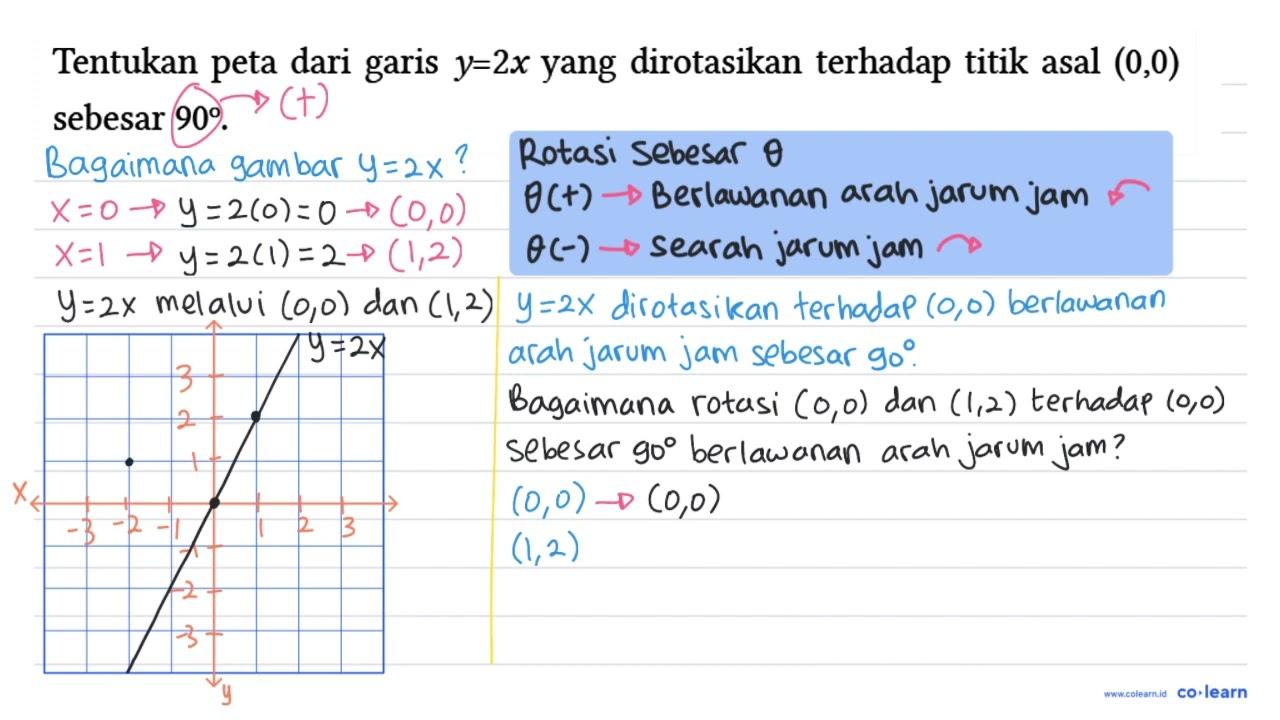 Tentukan peta dari garis y=2x yang dirotasikan terhadap titik asal (0,0)
sebesar 90°. → (+)
Bagaimana gambar y=2x?
x=0 → y=2(0)=0 → (0,0)
x=1 → y=2(1)=2 → (1,2)
y=2x melalui (0,0) dan (1,2)
Rotasi Sebesar θ
θ(+) → Berlawanan arah jarum jam
θ(-) → Searah jarum jam
y=2x dirotasikan terhadap (0,0) berlawanan
arah jarum jam sebesar 90°.
Bagaimana rotasi (0,0) dan (1,2) terhadap (0,0)
sebesar 90° berlawanan arah jarum jam?
(0,0) → (0,0)
(1,2)
y=2x
3
2
1
x
-3 -2 -1 1 2 3
-1
-2
-3
y
www.colearn.id co·learn